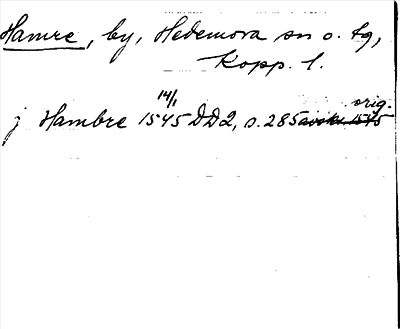 Hamre, by, Hedemora sn o. tg,
Kopp. l.
j Hambre 14/1 1545 DD2, s. 285 orig.